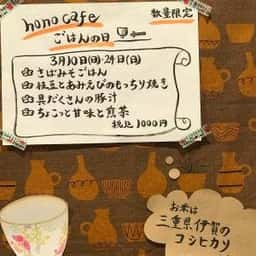 hono cafe
ごはんの日
数量限定
3月10日(日)・24日(日)
さばみそごはん
枝豆とあみえびのもっちり焼き
具だくさんの豚汁
ちょこっと甘味と煎茶
税込1000円
お米は
三重県伊賀の
コシヒカリ